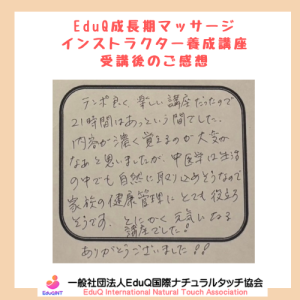 EduQ成長期マッサージ
インストラクター養成講座
受講後のご感想
テンポ良く、楽しい講座だったので
21時間はあっという間でした。
内容が濃く覚えるのが大変か
なあと思いましたが、中医学は生活
の中でも自然に取り込めそうなので
家族の健康管理にとても役立ち
そうです。とにかく元気になる
講座でした!
ありがとうございました!!
EduQINT
一般社団法人EduQ国際ナチュラルタッチ協会
EduQ International Natural Touch Association